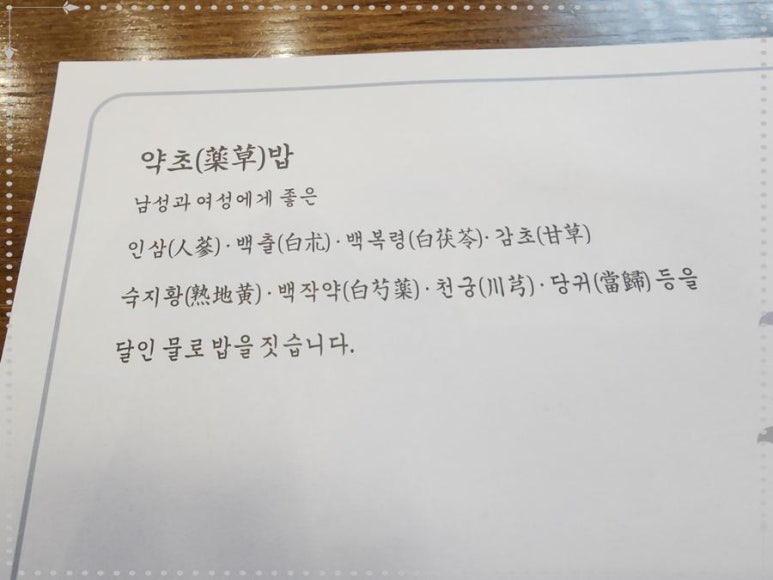 약초(薬草)밥
남성과 여성에게 좋은
인삼(人蔘)·백출(白朮)·백복령(白茯苓)·감초(甘草)
숙지황(熟地黃)·백작약(白芍薬)·천궁(川芎)·당귀(當歸) 등을
달인 물로 밥을 짓습니다.